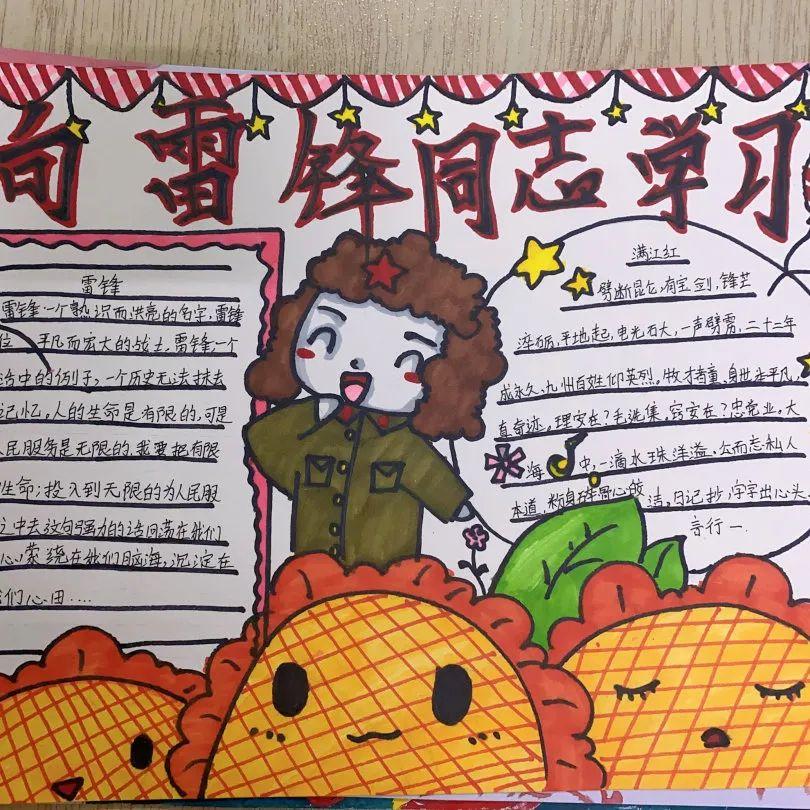 向雷锋同志学习
雷锋
雷锋一个熟识而洪亮的名字,雷锋
位 平凡而宏大的战士,雷锋一个
活中的例子,一个历史无法抹去
记忆。人的生命是有限的,可是
人民服务是无限的,我要把有限
生命;投入到无限的为人民服
之中去这句强力的话回荡在我们
心,萦绕在我们脑海,沉淀在
们心田....
满江红
劈断昆仑,有宝剑,锋芒
淬砺,平地起,电光石火,一声劈雷,二十三年
成永久,九州百姓仰英烈,牧才青童,身世走平凡,
真奇迹。理安在?毛选集,窍安在?忠党业。大
海中,一滴水珠洋溢,公而忘私人
本道,粉身碎骨心皎洁,日记抄,字字出心头
言行一.